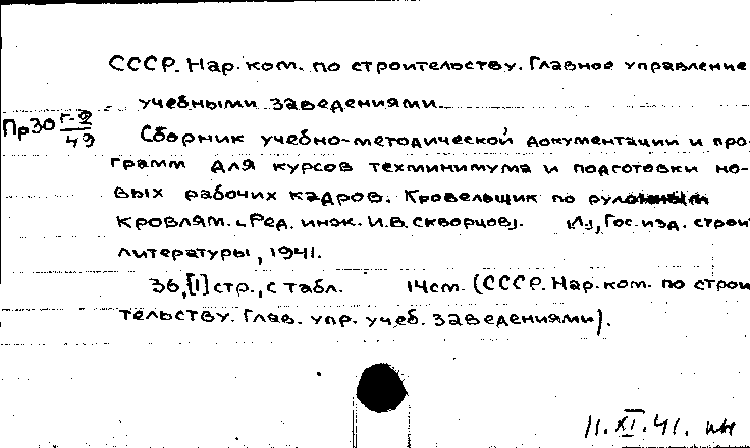 СССР. Нар. ком. по строительству. Главное управление
учебными заведениями.
Пр30 г-9/49
Сборник учебно-методической документации и про-
грамм для курсов техминимума и подготовки но-
вых рабочих кадров. Кровельщик по рулонным
кровлям. [Ред. инж. И.В. Скворцов]. [М], Гос. изд. строит
литературы, 1941.
36, [1] стр., с табл. 14см. (СССР. Нар. ком. по строи
тельству. Глав. упр. учеб. заведениями).
11.XI.41.